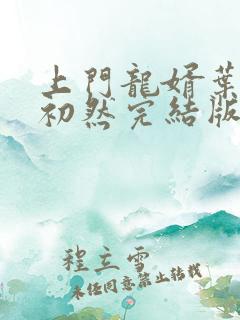 上門龍婿葉
初然完結版
程立雪
未經同意禁止轉載